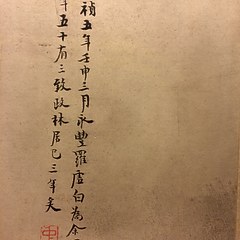 禎五年壬申三月永豐羅虛白為余
十五十有三致政林居已三年矣